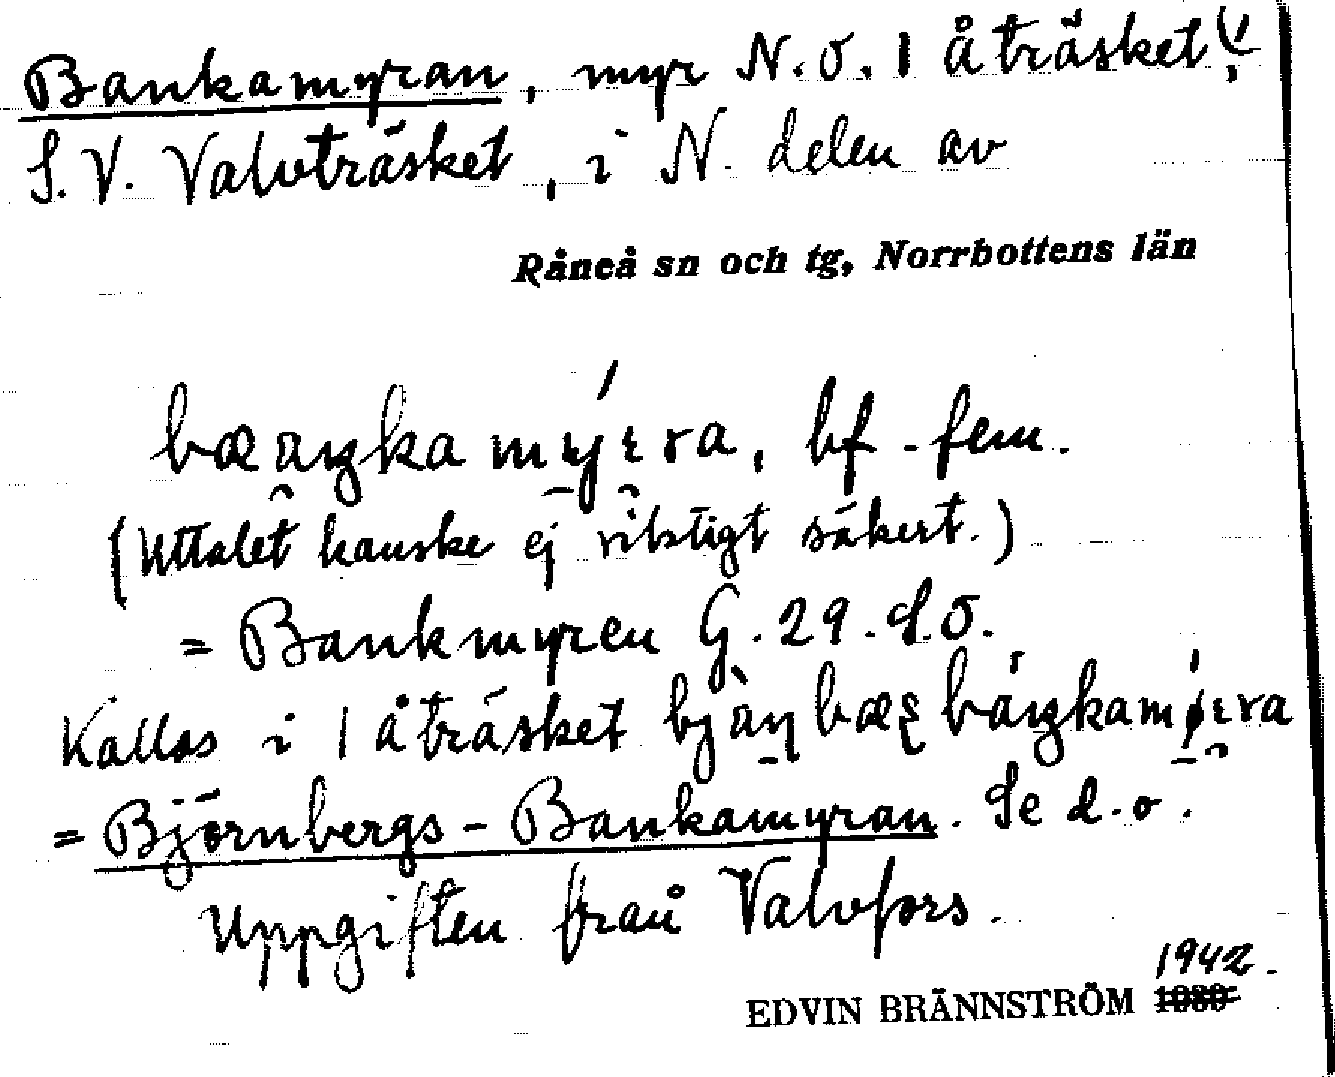 Bankamyran, myr N.O. Iåträsket(!)
S.V. Valvträsket, i N. delen av
Råneå sn och tg, Norrbottens län
bf. fem.
(Uttalet kanske ej riktigt säkert.)
= Bankmyren G. 29. S.O.
Kallas i Iåträsket
= Björnbergs-Bankamyran. Se d.o.
Uppgiften från Valvfors.
1942.
EDVIN BRÄNNSTRÖM